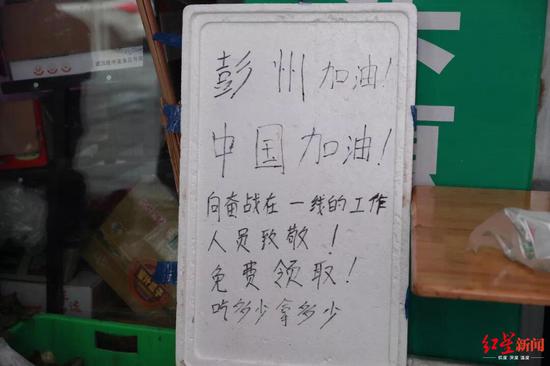 彭州加油！
中国加油！
向奋战在一线的工作
人员致敬！
免费领取！
吃多少拿多少
红星新闻